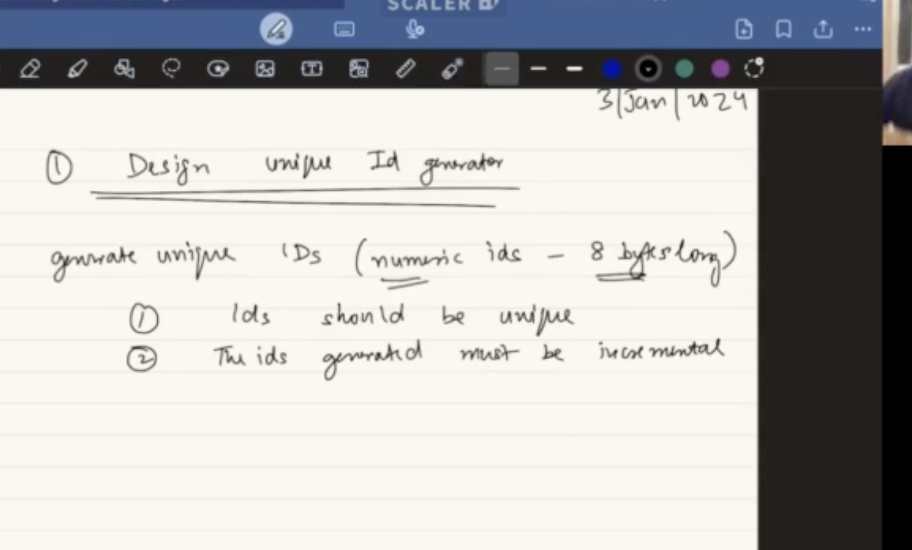 SCALER
3/Jan/2024
① Design unique Id generator
generate unique IDs (numeric ids - 8 bytes long)
① Ids should be unique
② The ids generated must be incremental